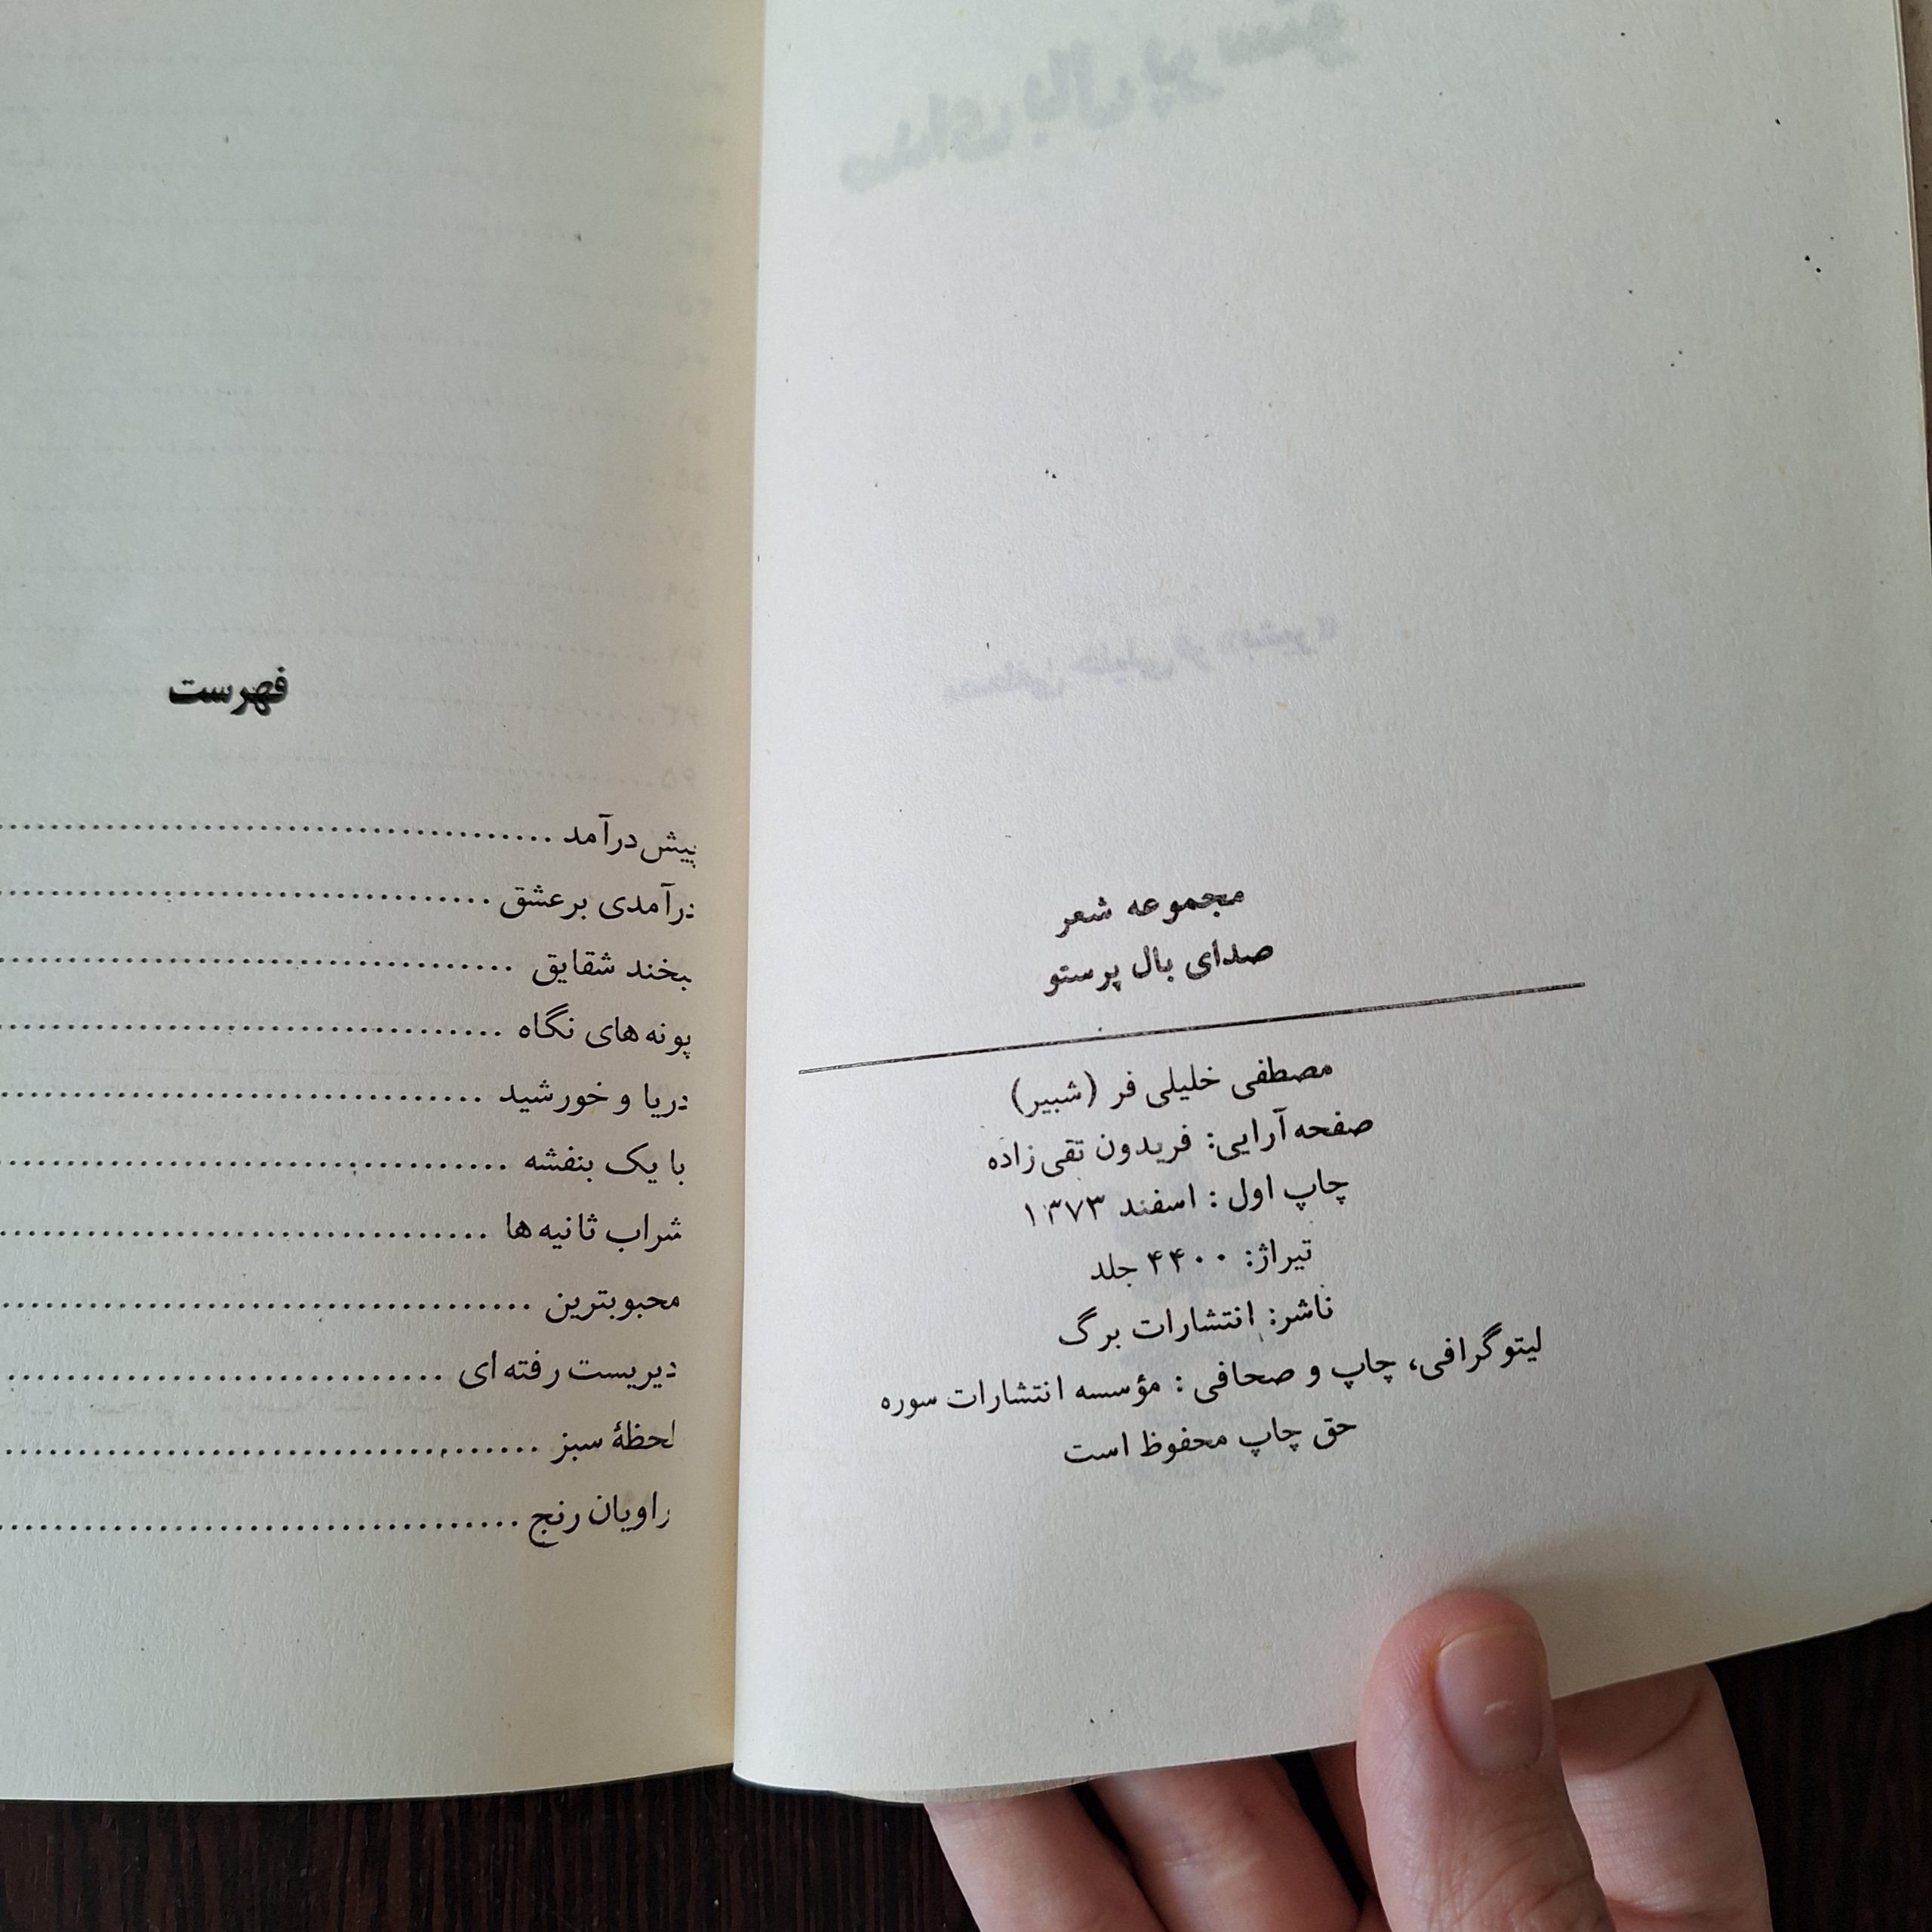 مجموعه شعر
صدای بال پرستو
مصطفی خلیلی فر (شبیر)
صفحه‌آرایی: فریدون تقی‌زاده
چاپ اول: اسفند ۱۳۷۳
تیراژ: ۴۴۰۰ جلد
ناشر: انتشارات برگ
لیتوگرافی، چاپ و صحافی: مؤسسه انتشارات سوره
حق چاپ محفوظ است
فهرست
پیش‌درآمد
درآمدی برعشق
شقایق
پونه‌های نگاه
دریا و خورشید
با یک بنفشه
شراب ثانیه‌ها
محبوبترین
دیریست رفته‌ای
لحظهٔ سبز
راویان رنج